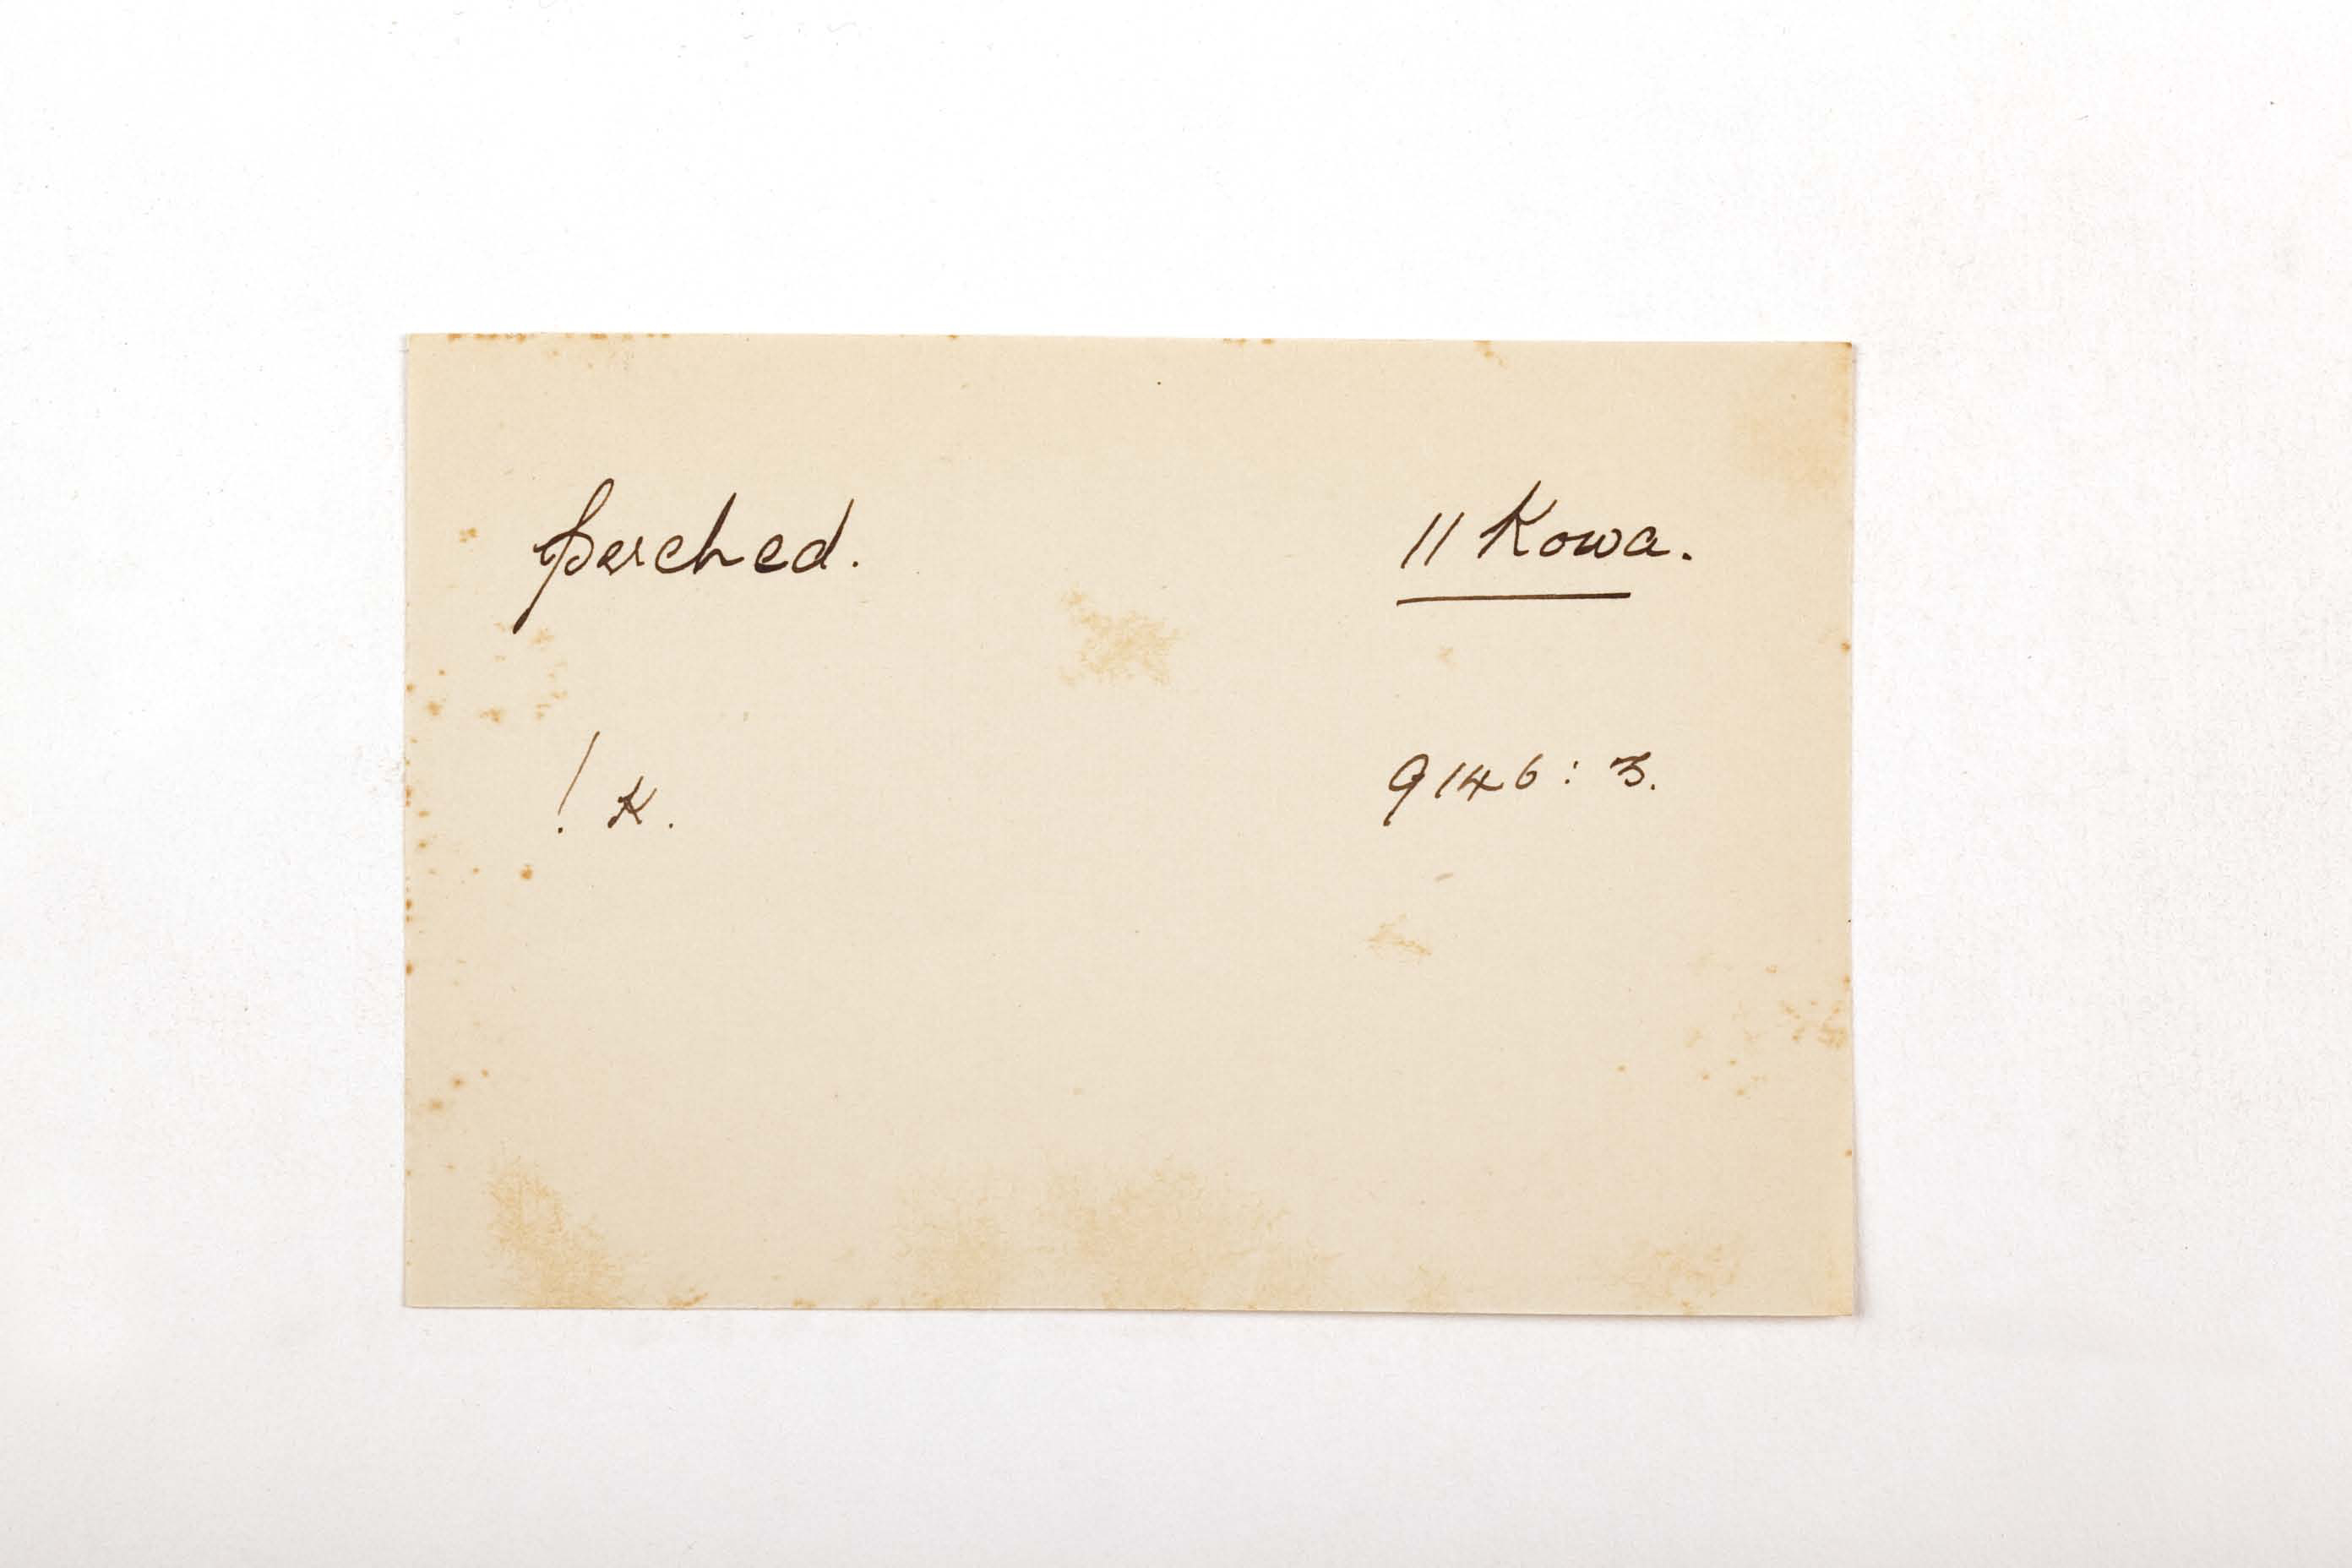 perched. || Kowa.
! K. 9146 : 3.